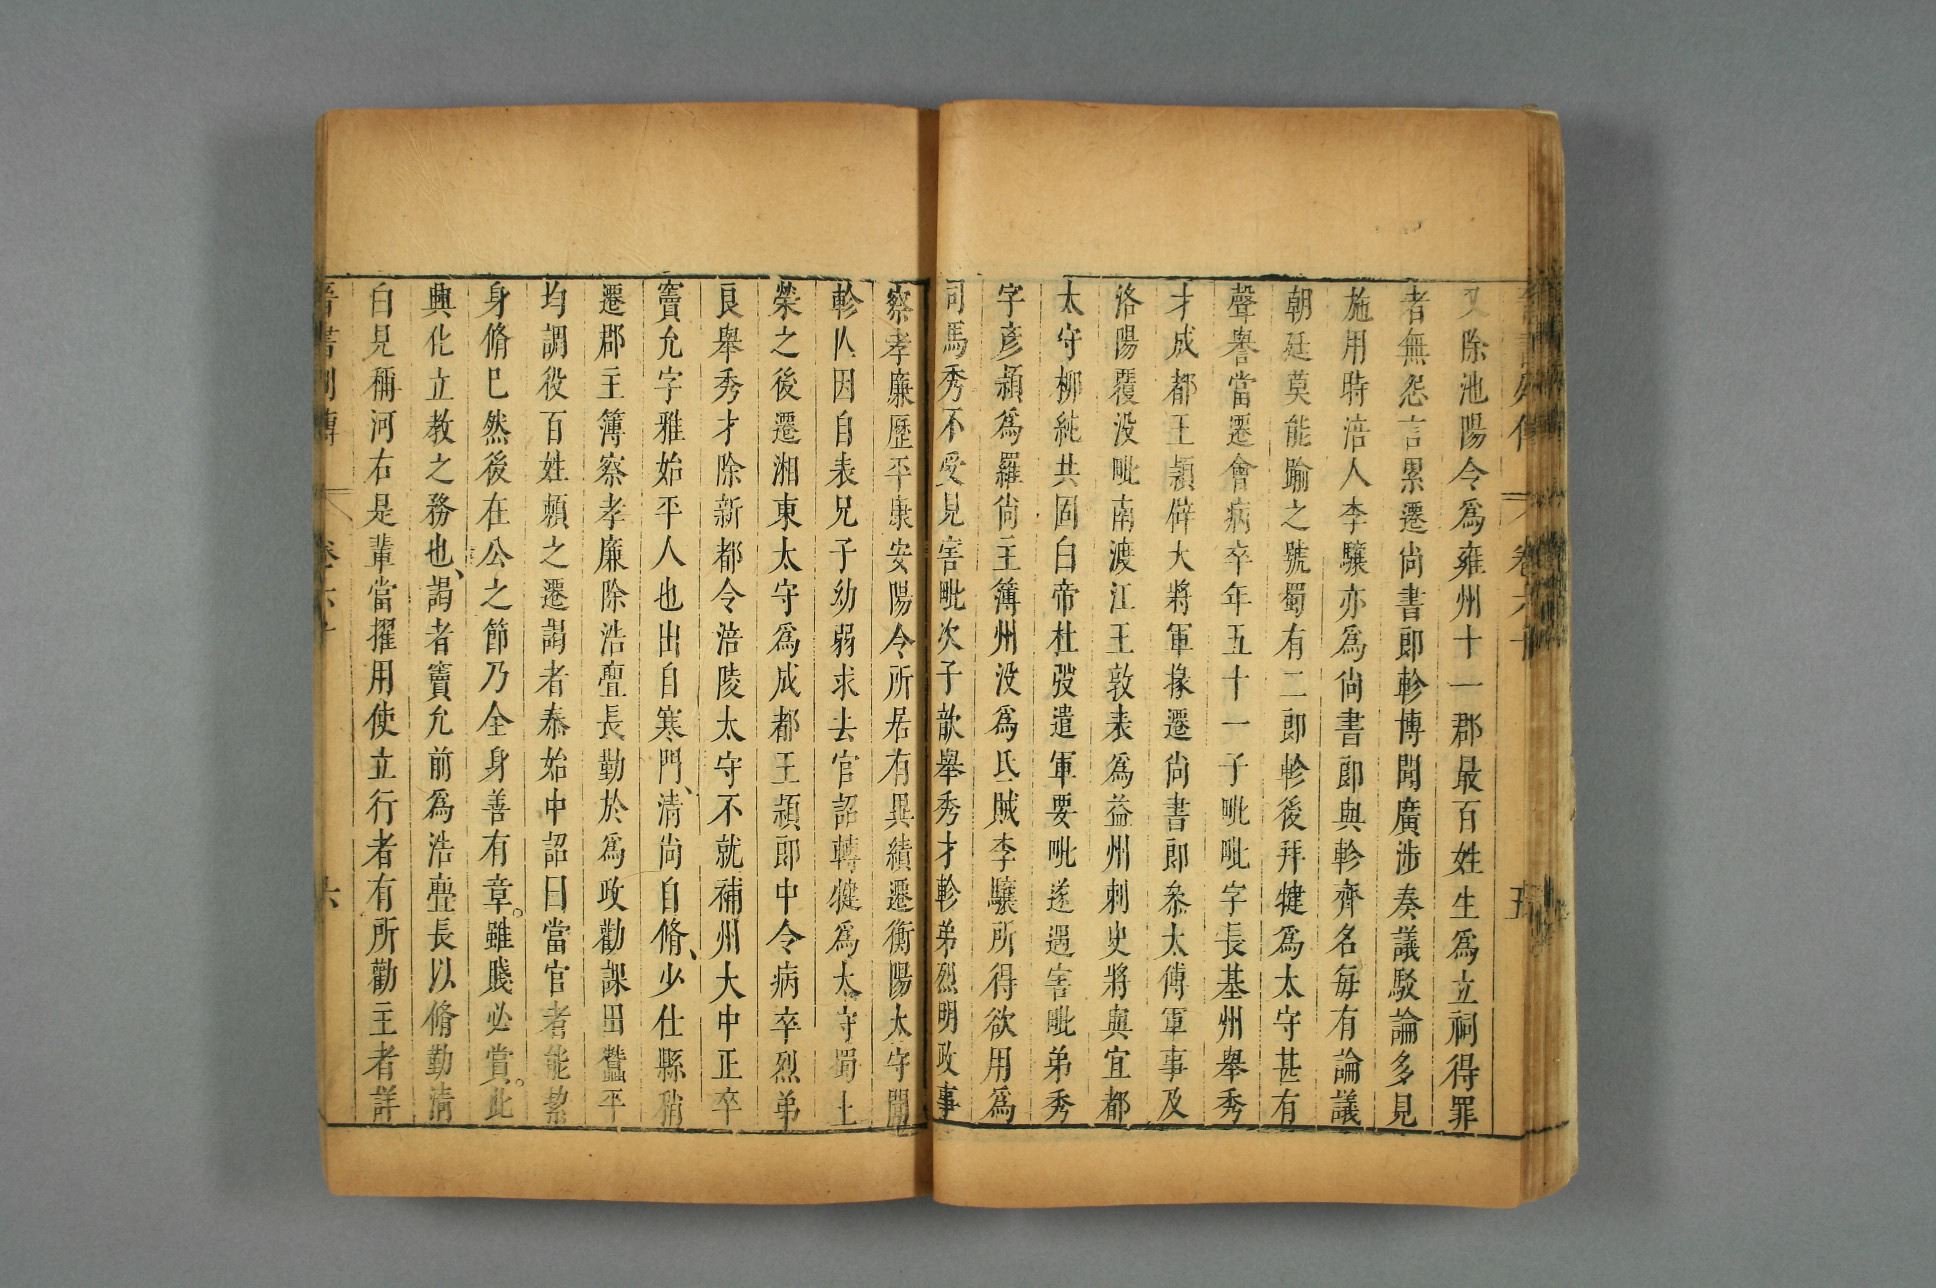 又除池陽令爲雍州十一郡最百姓生爲立祠得罪
者無怨言累遷尚書郎軫博聞廣涉奏議駁論多見
施用時涪人李驤亦爲尚書郎與軫齊名每有論議
朝廷莫能踰之號蜀有二郎軫後拜犍爲太守甚有
聲譽當遷會病卒年五十一子毗毗字長基州舉秀
才成都王潁辟大將軍掾遷尚書郎叅太傅軍事及
洛陽覆没毗南渡江王敦表爲益州刺史將與宜都
太守柳純共固白帝杜弢遣軍要毗遂遇害毗弟秀
字彦潁爲羅尚主簿州没爲氐賊李驤所得欲用爲
司馬秀不受見害毗次子歆舉秀才軫弟烈明政事
察孝廉歷平康安陽令所居有異績遷衡陽太守聞
軫亾因自表兄子幼弱求去官詔轉犍爲太守蜀土
榮之後遷湘東太守爲成都王潁郎中令病卒烈弟
良舉秀才除新都令涪陵太守不就補州大中正卒
竇允字雅始平人也出自寒門、清尚自脩、少仕縣稍
遷郡主簿察孝廉除浩亹長勤於爲政勸課田蠶平
均調役百姓頼之遷謁者泰始中詔曰當官者能㓗
身脩巳然後在公之節乃全身善有章。雖賤必賞。此
興化立教之務也、謁者竇允前爲浩亹長以脩勤清
白見稱河右是輩當擢用使立行者有所勸主者詳
晋書列傳 卷六十 六